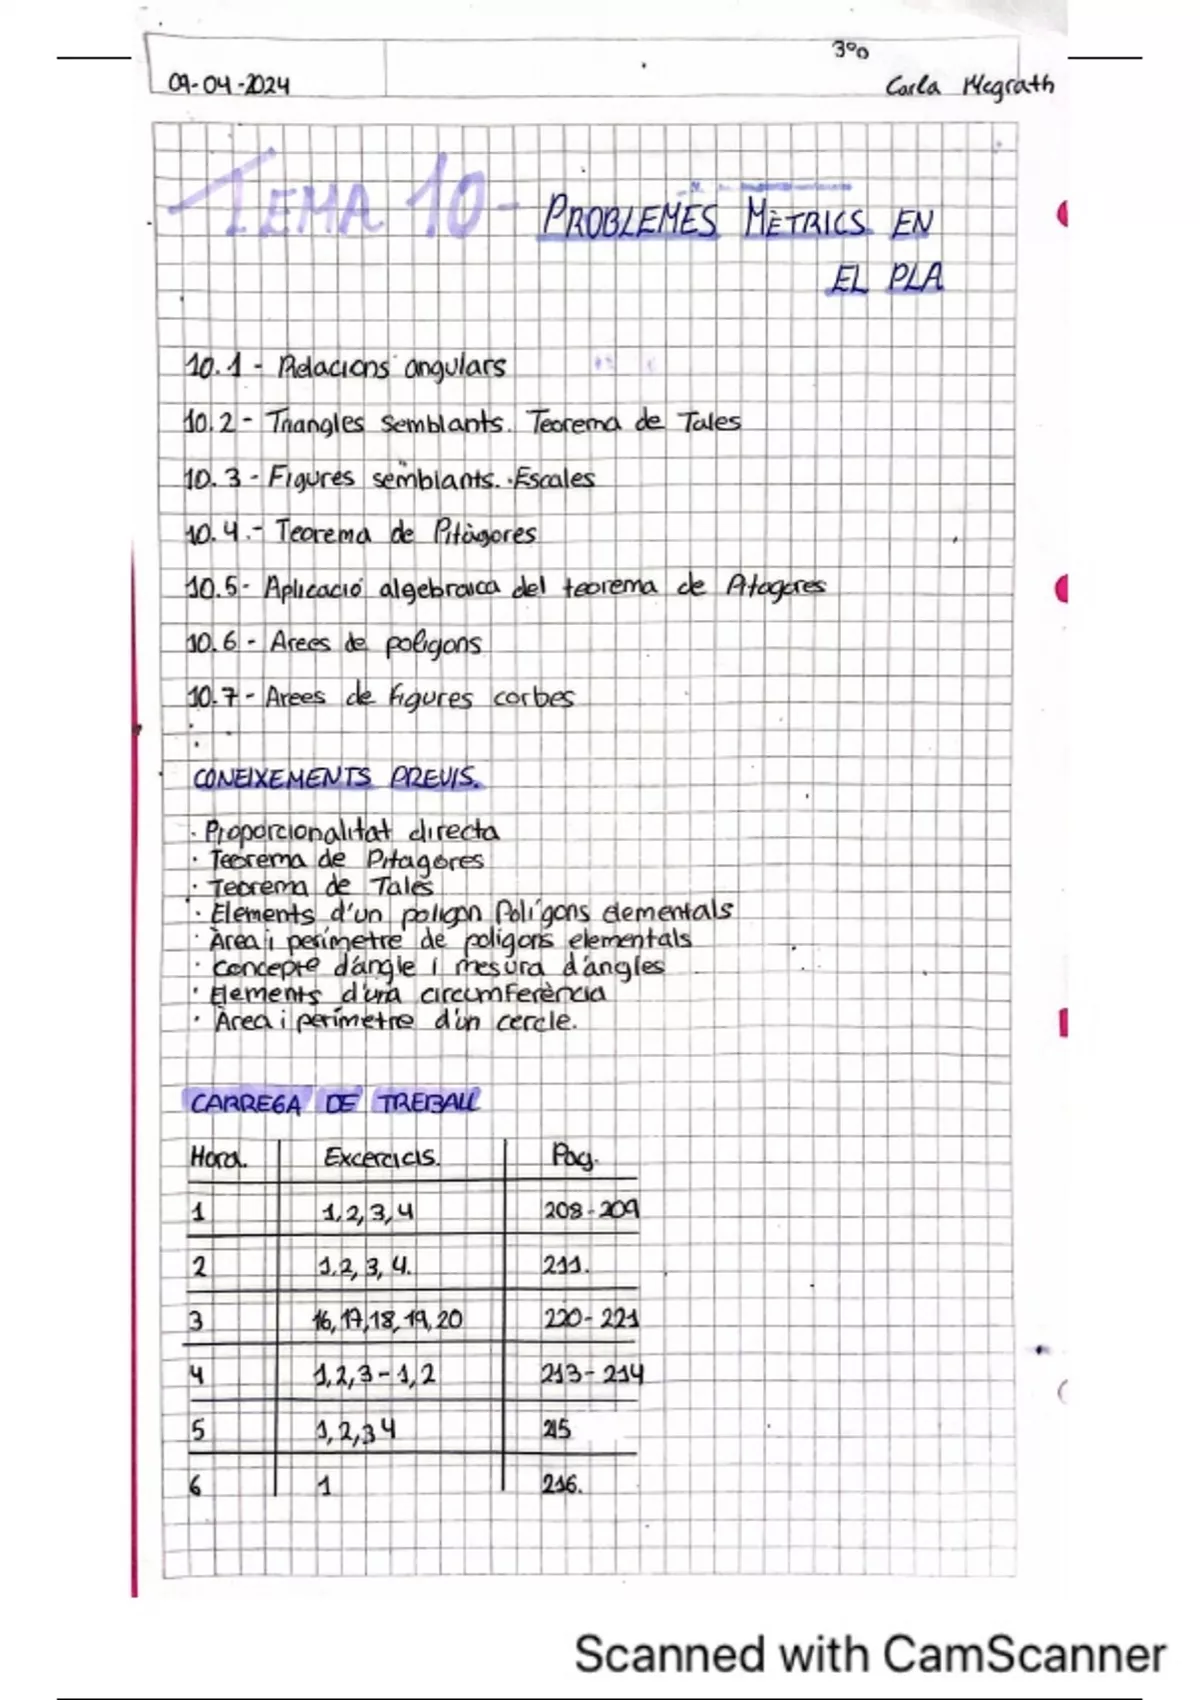 3º0
09-04-2024
Carla Mcgrath
TEMA 10- PROBLEMES MÈTRICS EN
EL PLA
10.1 - Relacions angulars
10.2 - Triangles semblants. Teorema de Tales
10.3 - Figures semblants. Escales
10.4.- Teorema de Pitàgores
10.5- Aplicació algebraica del teorema de Pitagores
10.6 - Arees de poligons
10.7 - Arees de figures corbes
CONEIXEMENTS PREVIS.
· Proporcionalitat directa
· Teorema de Pitagores
· Teorema de Tales
· Elements d'un poligon Polígons elementals
· Àrea i perímetre de poligons elementals
· Concepte d'angle i mesura d'angles
· Elements d'una circumferència
· Àrea i perímetre d'un cercle.
CARREGA DE TREBALL
Hora. Excercicis. Pag.
1 1,2,3,4 208-209
2 1.2,3,4. 211.
3 16,17,18,19,20 220-221
4 1,2,3-1,2 213-214
5 1,2,3 4 215
6 1 216.
Scanned with CamScanner